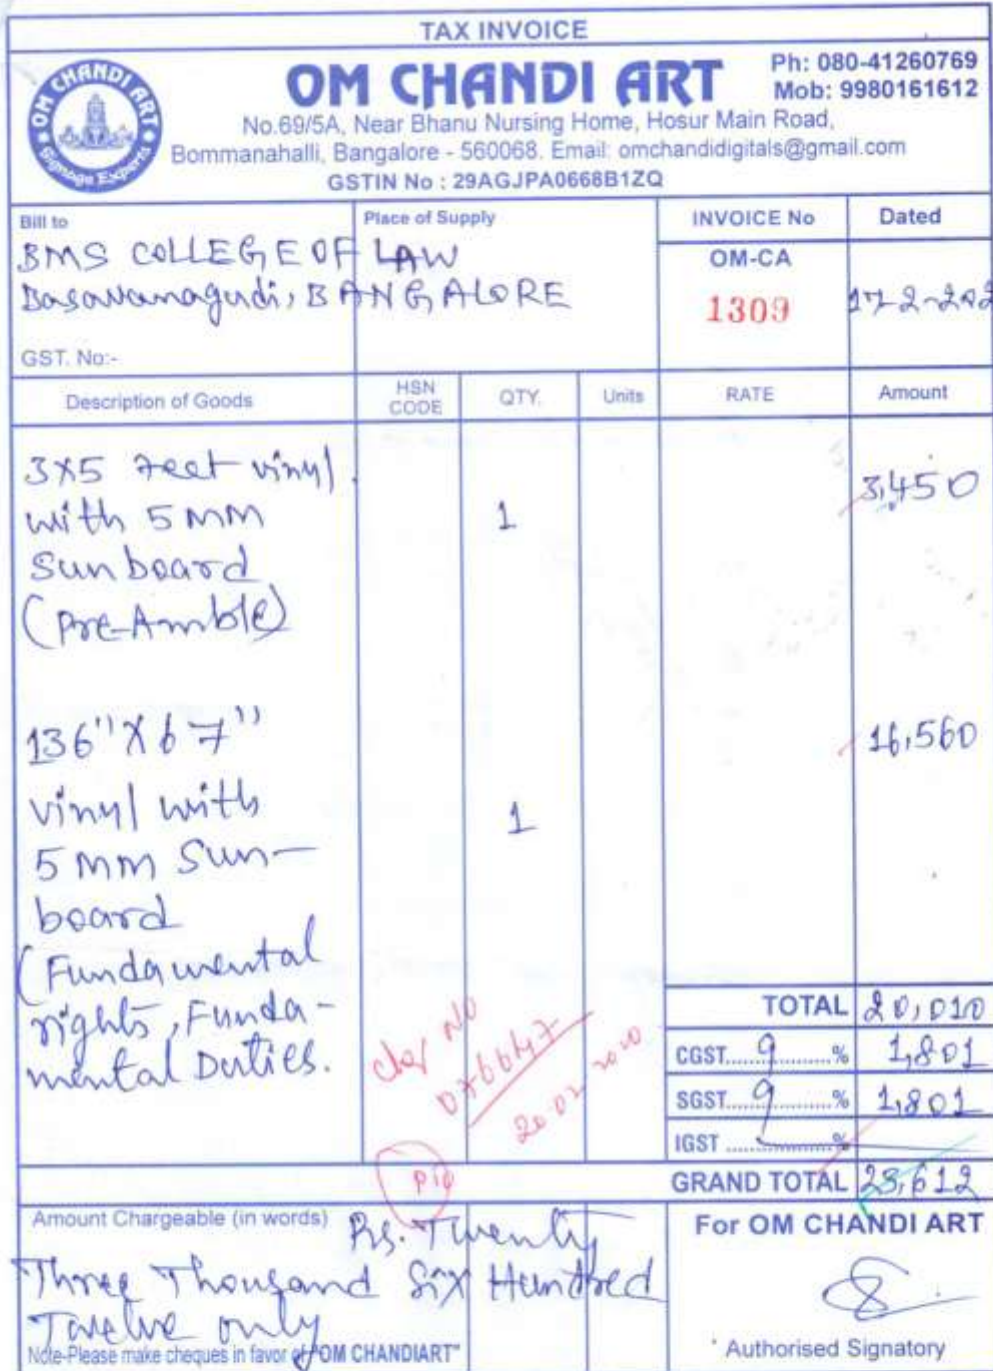 TAX INVOICE
OM CHANDI ART
Signage Experts
OM CHANDI ART
Ph: 080-41260769
Mob: 9980161612
No.69/5A, Near Bhanu Nursing Home, Hosur Main Road,
Bommanahalli, Bangalore - 560068. Email: omchandidigitals@gmail.com
GSTIN No : 29AGJPA0668B1ZQ
Bill to
Place of Supply
INVOICE No
Dated
BMS COLLEGE OF LAW
Basavanagudi, BANGALORE
OM-CA
1309
17-2-202
GST. No:-
Description of Goods HSN CODE QTY. Units RATE Amount
3X5 Feet vinyl
with 5 MM
Sunboard
(Pre-Amble)
1
3,450
136"X67"
vinyl with
5 MM Sun-
board
(Fundamental
rights, Funda-
mental Duties.
1
16,560
TOTAL 20,010
CGST....9....% 1,801
SGST....9....% 1,801
IGST ........%
GRAND TOTAL 23,612
No
20-02-2020
Amount Chargeable (in words) Rs. Twenty
Three Thousand Six Hundred
Twelve only
Note-Please make cheques in favor of "OM CHANDIART"
For OM CHANDI ART
Authorised Signatory